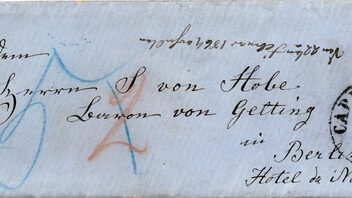 dem
Herrn S von Hobe
Baron von Getting
in
Berli
Hotel du N
2
CAR